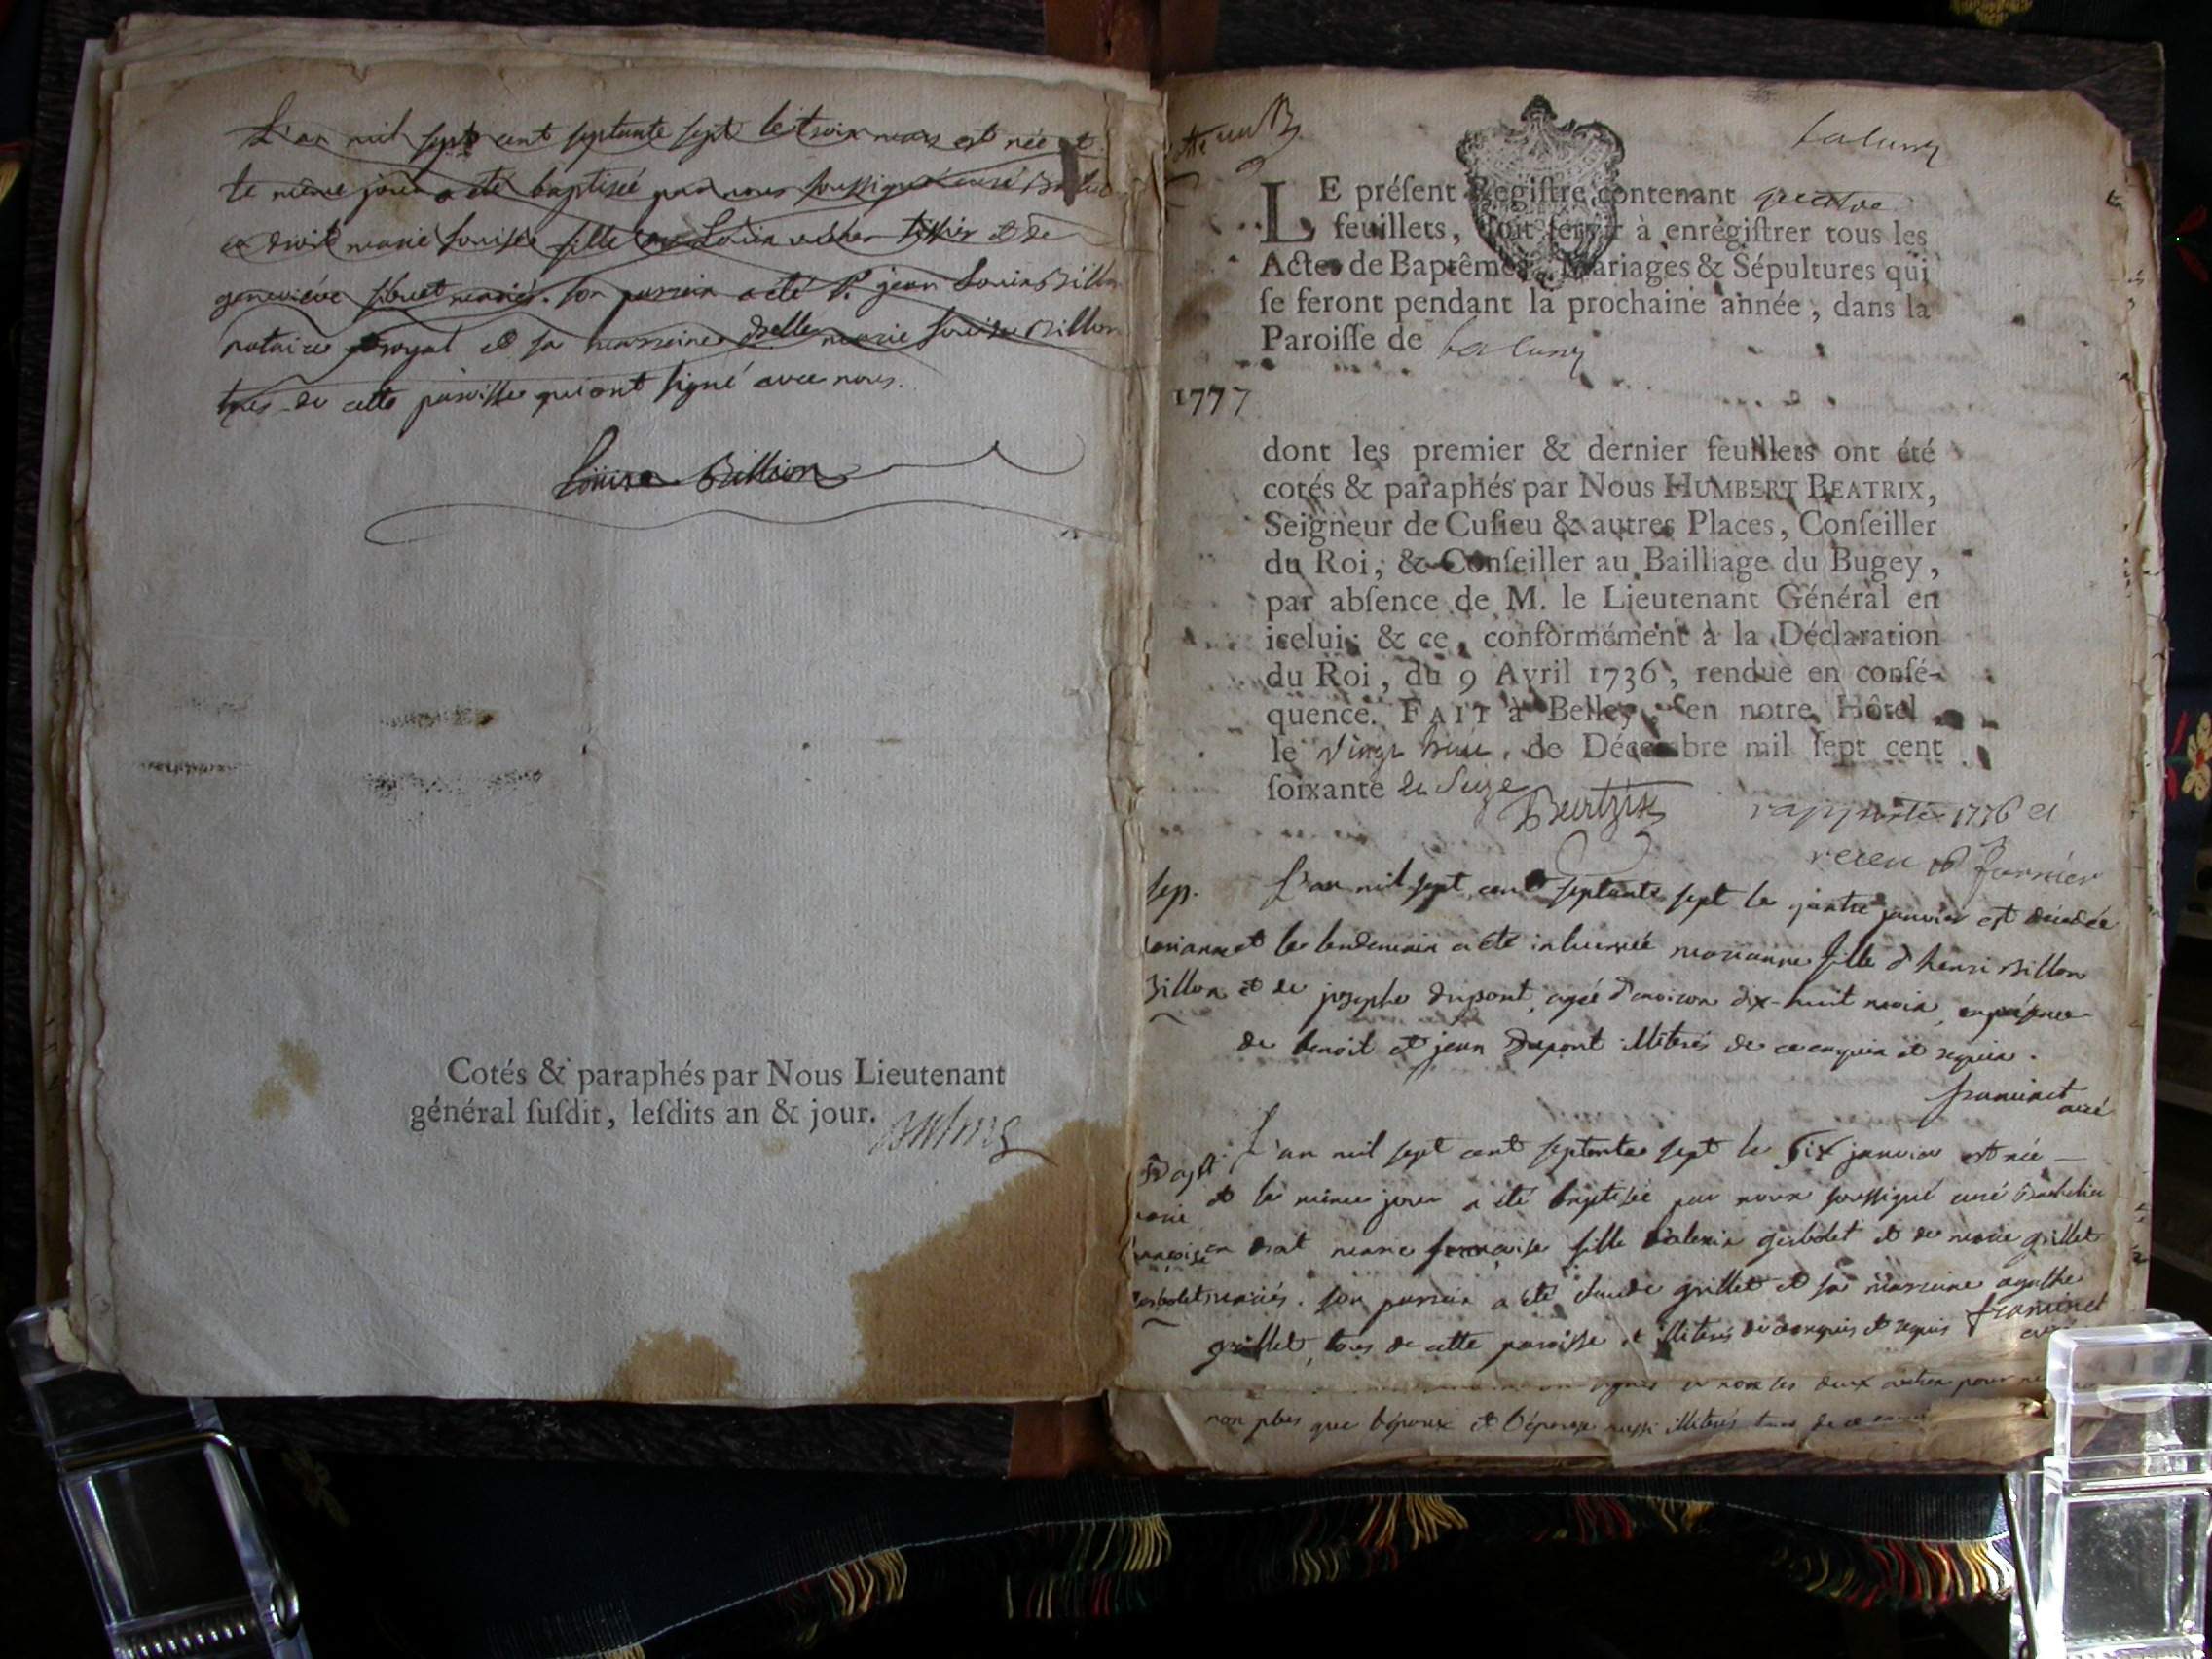 L'an mil sept cent septante sept le trois mars est née et
le même jour a été baptisée par nous soussigné curé
en droit marie louise fille de Louis tissier et de
geneviève mariés. son parrain a été Sr. jean Louis Billon
notaire royal et sa marraine delle marie louise Billon
tous de cette paroisse qui ont signé avec nous.
Louise Billion
Cotés & paraphés par Nous Lieutenant
général ſuſdit, leſdits an & jour.
LE préſent Regiſtre contenant quatre
feuillets, doit ſervir à enrégiſtrer tous les
Actes de Baptêmes, Mariages & Sépultures qui
ſe feront pendant la prochaine année, dans la
Paroiſſe de
1777
dont les premier & dernier feuillets ont été
cotés & paraphés par Nous HUMBERT BEATRIX,
Seigneur de Cuſieu & autres Places, Conſeiller
du Roi, & Conſeiller au Bailliage du Bugey,
par abſence de M. le Lieutenant Général en
icelui; & ce, conformément à la Déclaration
du Roi, du 9 Avril 1736, rendue en conſé-
quence. FAIT à Belley, en notre Hôtel
le Vingt huit, de Décembre mil ſept cent
ſoixante et Seize
Beatrix
rapporté 1776 et
receu
Sep. L'an mil sept cent septante sept le janvier est décédée
marianne et le lendemain a été inhumée marianne fille d'henri Billon
Billon et de josephe dupont, agée d'environ dix-huit mois, en présence
de benoit et jean Dupont illiterés de ce enquis et requis.
franinet
curé
L'an mil sept cent septante sept le six janvier est née
Bapt. et le même jour a été baptisée par nous soussigné curé Bachelier
marie
françoise en droit marie françoise fille d'alexis gesbolet et de marie grillet
gesbolet mariés. son parrain a été claude grillet et sa marraine agathe
grillet, tous de cette paroisse et illiterés de ce enquis et requis franinet
curé
signés et non les deux autres pour
non plus que l'époux et l'épouse aussi illiterés tous de ce